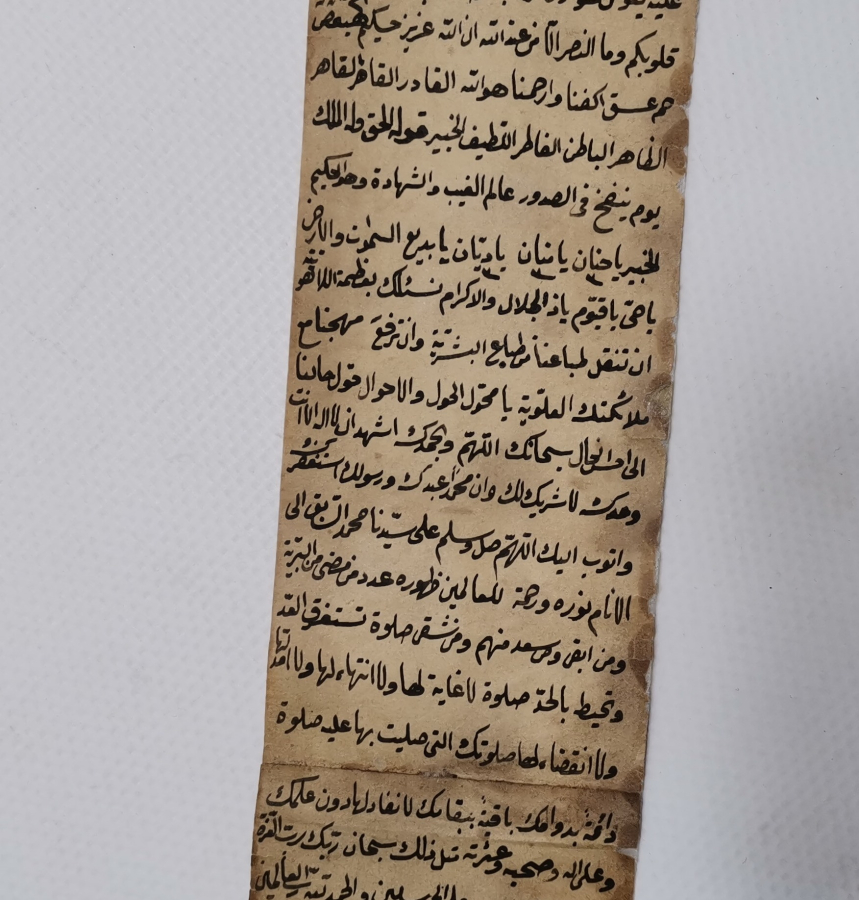 قلوبكم وما النصر الا من عند الله ان الله عزيز حكيم كهيعص
حم عسق اكفنا وارحمنا هو الله القادر القاهر القاهر
الظاهر الباطن الفاطر اللطيف الخبير قوله الحق وله الملك
يوم ينفخ فى الصدور عالم الغيب والشهادة وهو الحكيم
الخبير يا حنان يا منان يا ديان يا بديع السموت والارض
يا حى يا قيوم ياذ الجلال والاكرام نسئلك بعظيمة اللاهوتية
ان تنقل طباعنا من طباع البشرية وان ترفع مهجنا مع
ملائكتك العلوية يا محول الحول والاحوال حول حالنا
الى احسن الحال سبحانك اللهم وبحمدك اشهد ان لا اله الا انت
وحدك لا شريك لك وان محمدا عبدك ورسولك استغفرك
واتوب اليك اللهم صل وسلم على سيدنا محمد السابق الى
الانام نوره ورحمة للعالمين ظهوره عدد من مضى من البرية
ومن ابقى ومن سعد منهم ومن شقى صلوة تستغرق العد
وتحيط بالحد صلوة لا غاية لها ولا انتهاء لها ولا امد لها
ولا انقضاء لها صلوتك التى صليت بها عليه صلوة
دائمة بدوامك باقية ببقائك لا نفاد لها دون علمك
وعلى اله وصحبه وعترته مثل ذلك سبحان ربك رب العزة
والحمد لله رب العالمين